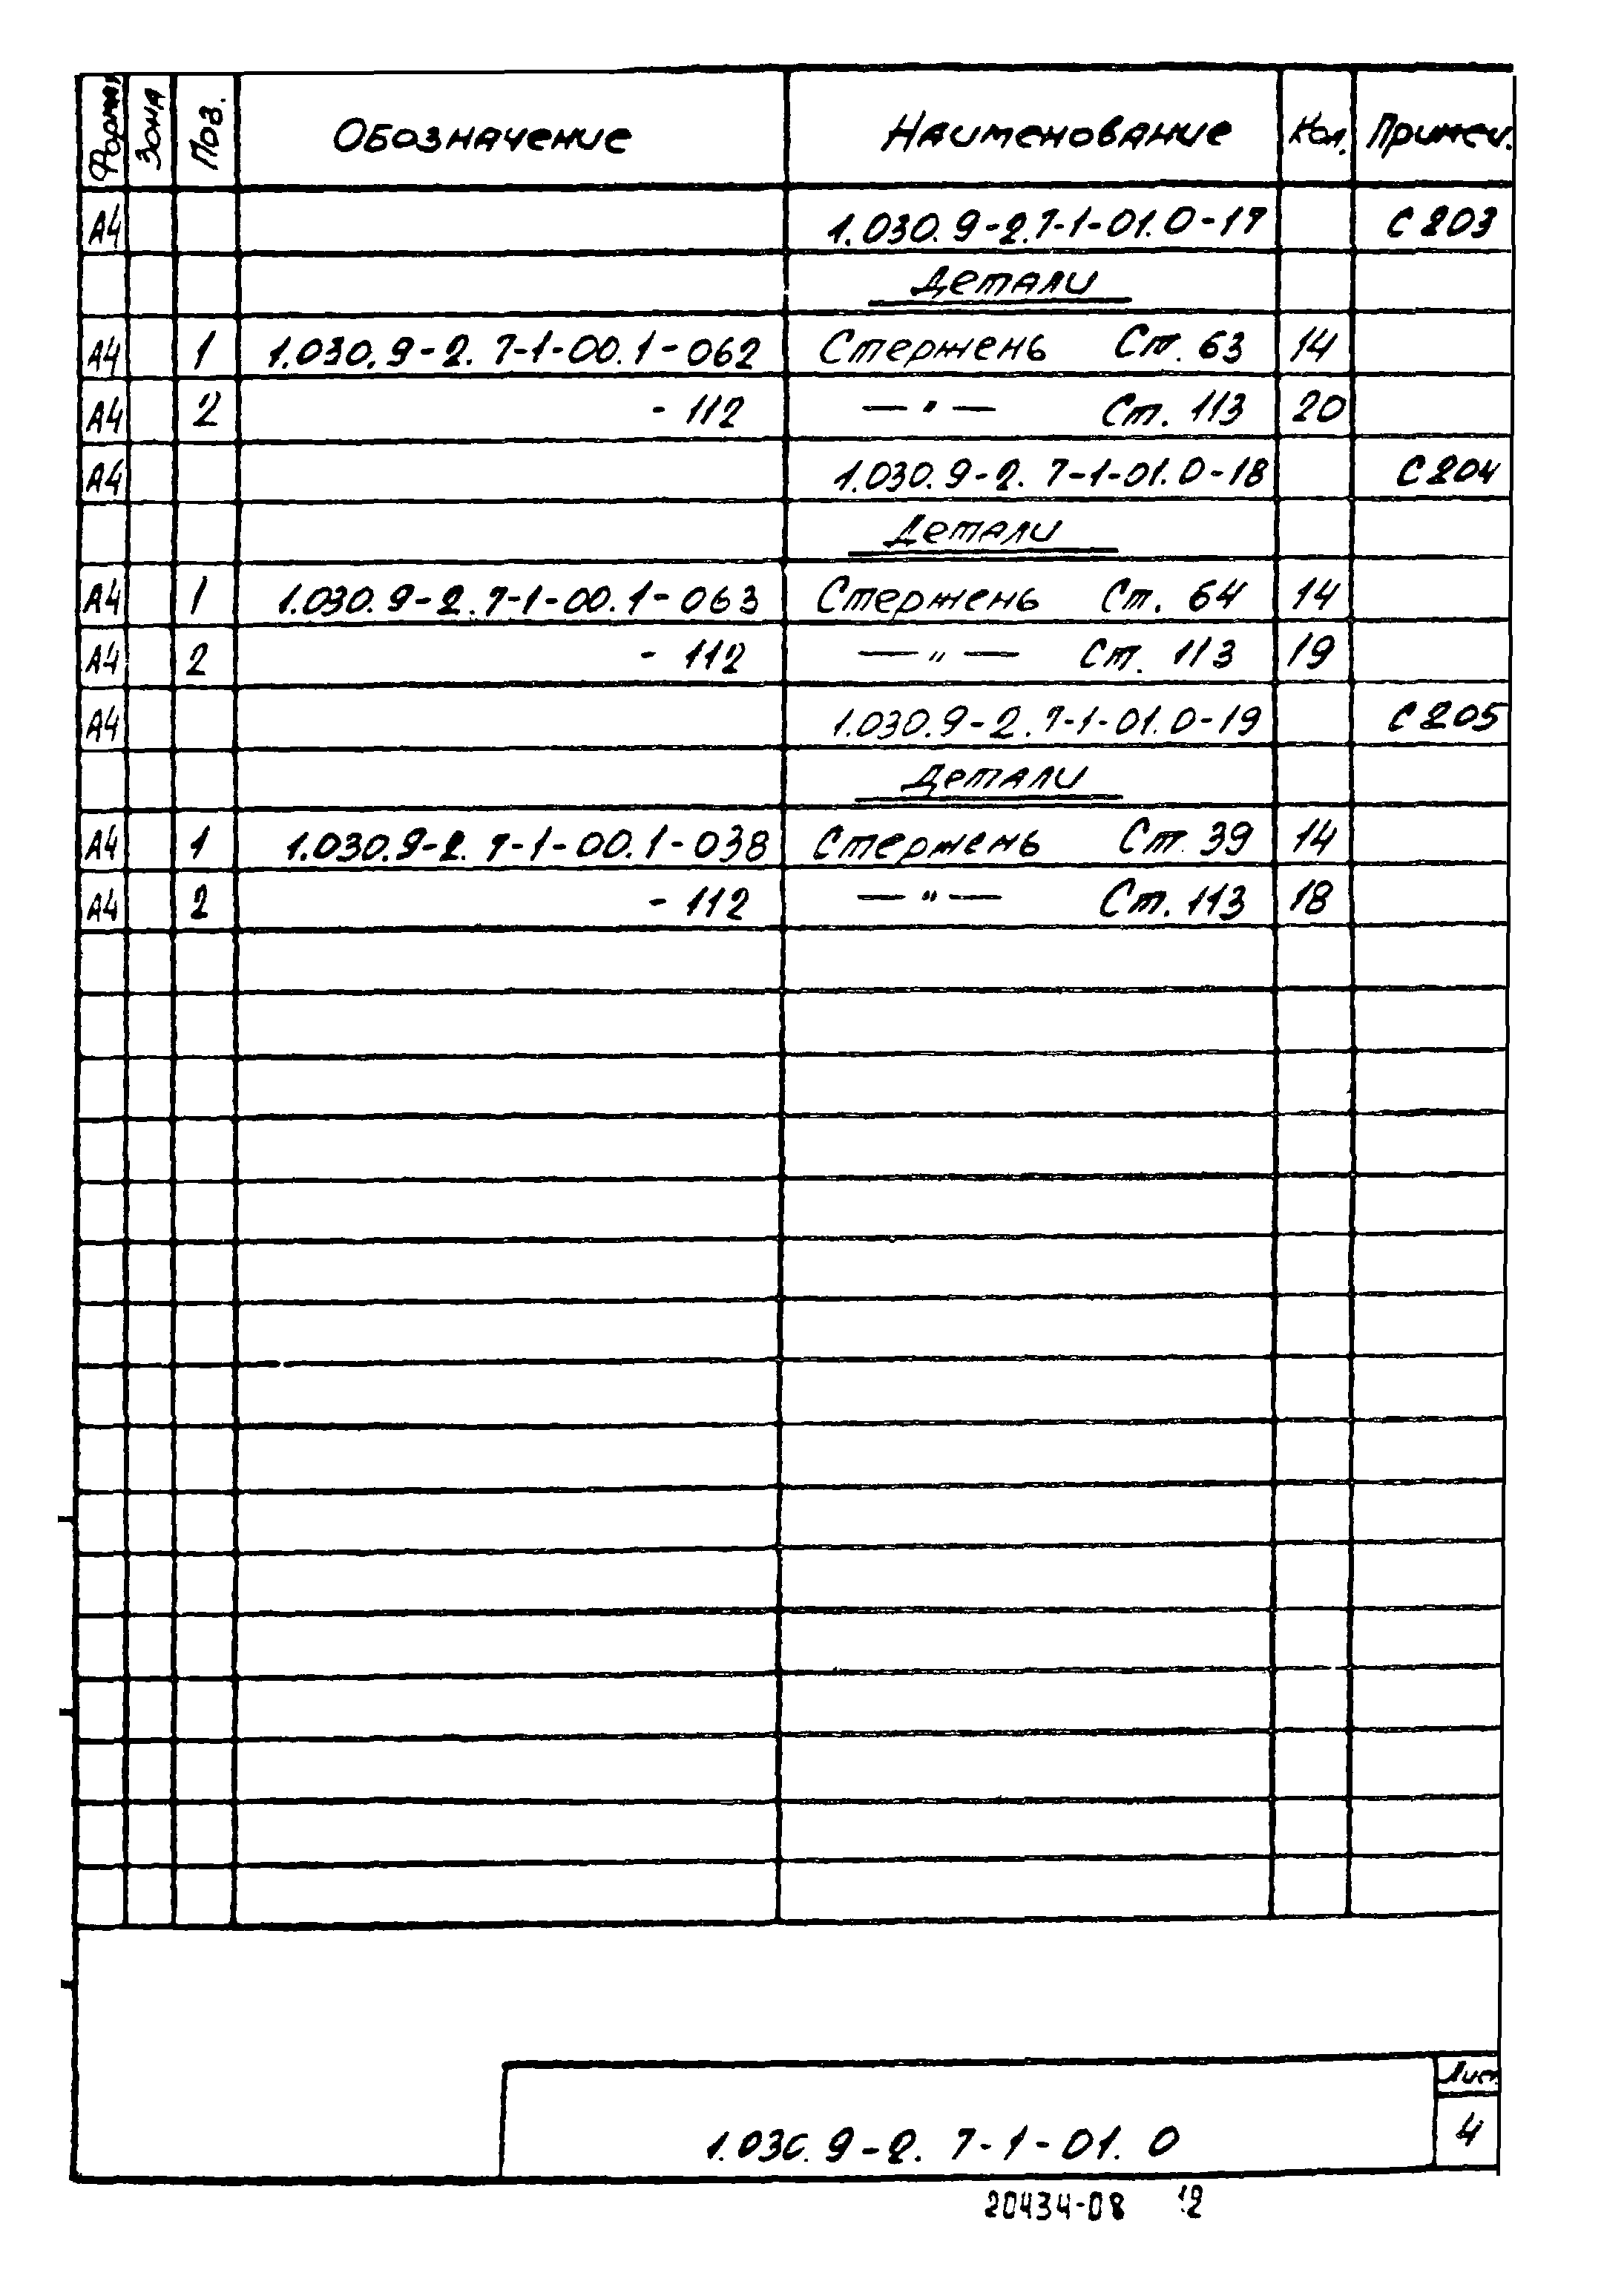 Формат Зона Поз. Обозначение Наименование Кол. Примеч.
А4 1.030.9-2.7-1-01.0-17 С 203
Детали
А4 1 1.030.9-2.7-1-00.1-062 Стержень Ст. 63 14
А4 2 - 112 — " — Ст. 113 20
А4 1.030.9-2.7-1-01.0-18 С 204
Детали
А4 1 1.030.9-2.7-1-00.1-063 Стержень Ст. 64 14
А4 2 - 112 — " — Ст. 113 19
А4 1.030.9-2.7-1-01.0-19 С 205
Детали
А4 1 1.030.9-2.7-1-00.1-038 Стержень Ст. 39 14
А4 2 - 112 — " — Ст. 113 18
Лист
1.030.9-2.7-1-01.0 4
20434-08 12